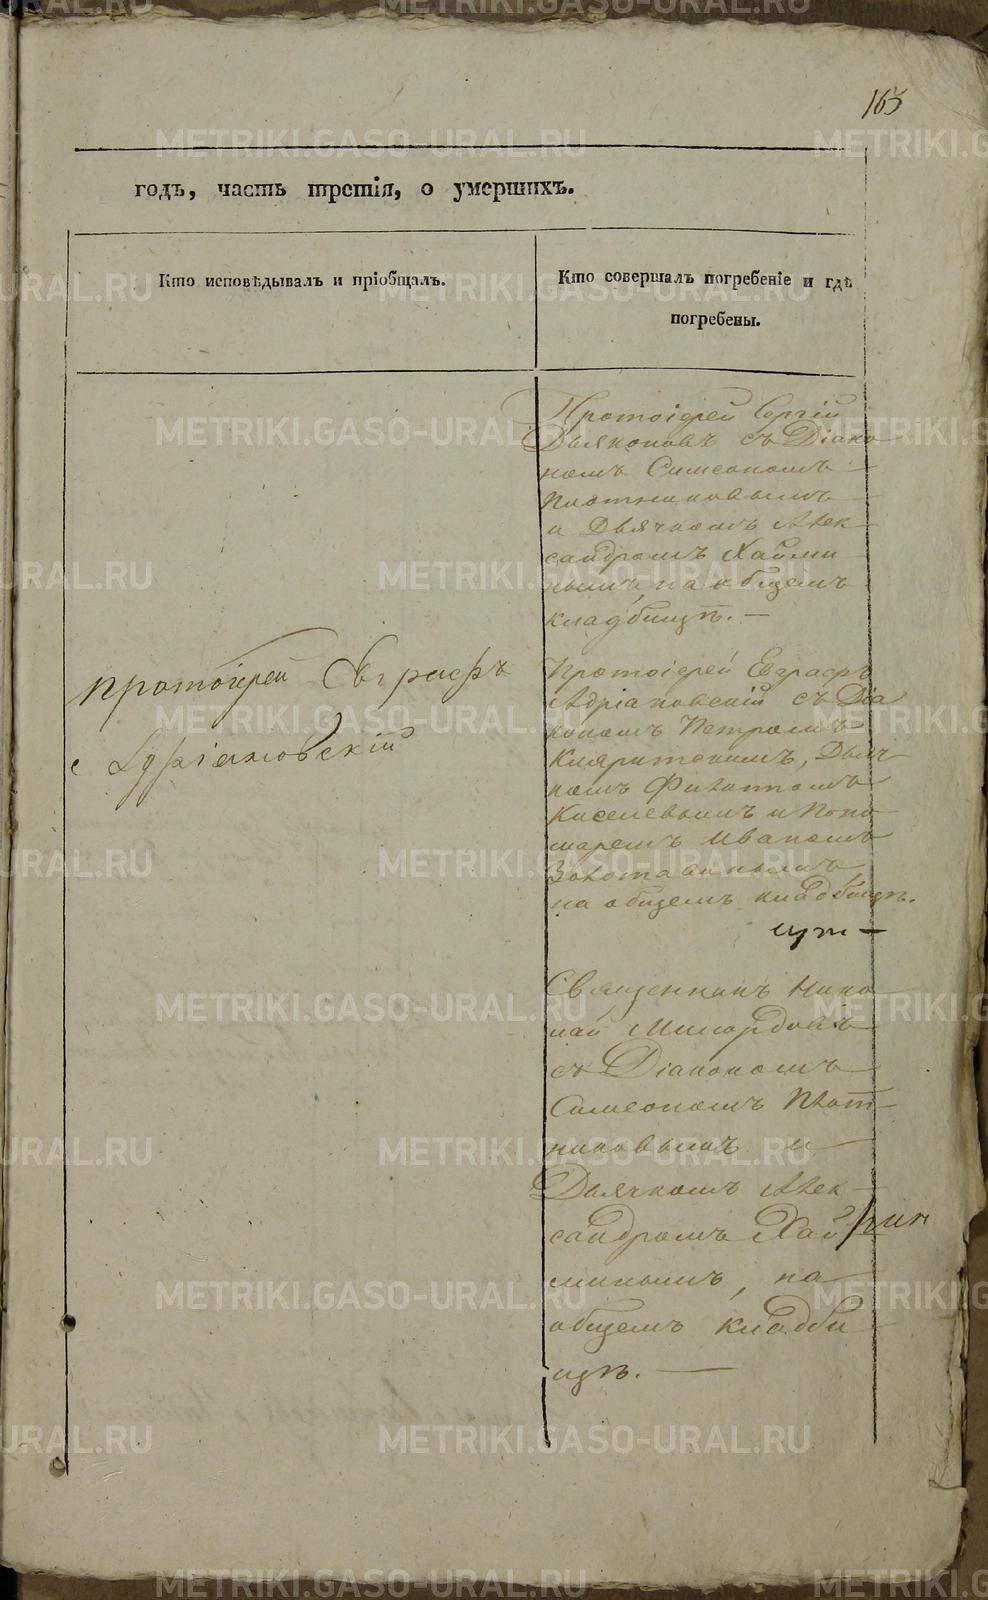 165
годъ, часть третія, о умершихъ.
Кто исповѣдывалъ и пріобщалъ.
Кто совершалъ погребеніе и гдѣ
погребены.
Протоіерей Сергій
Дьяконовъ съ Діако
номъ Симеономъ
Плотниковымъ
и Дьячкомъ Алек
сандромъ Хайми
нымъ, на общемъ
кладбищѣ. —
Протоіерей Евграфъ
Адріановскій
Протоіерей Евграфъ
Адріановскій съ Діа
кономъ Петромъ
Дьяч
комъ Филиппомъ
Киселевымъ и Поно
маремъ Иваномъ
Золотавинымъ
на общемъ кладбищѣ.
Священникъ Нико
лай Милордовъ
съ Діакономъ
Симеономъ Плот
никовымъ и
Дьячкомъ Алек
сандромъ Хай
минымъ, на
общемъ кладби
щѣ. —
METRIKI.GASO-URAL.RU